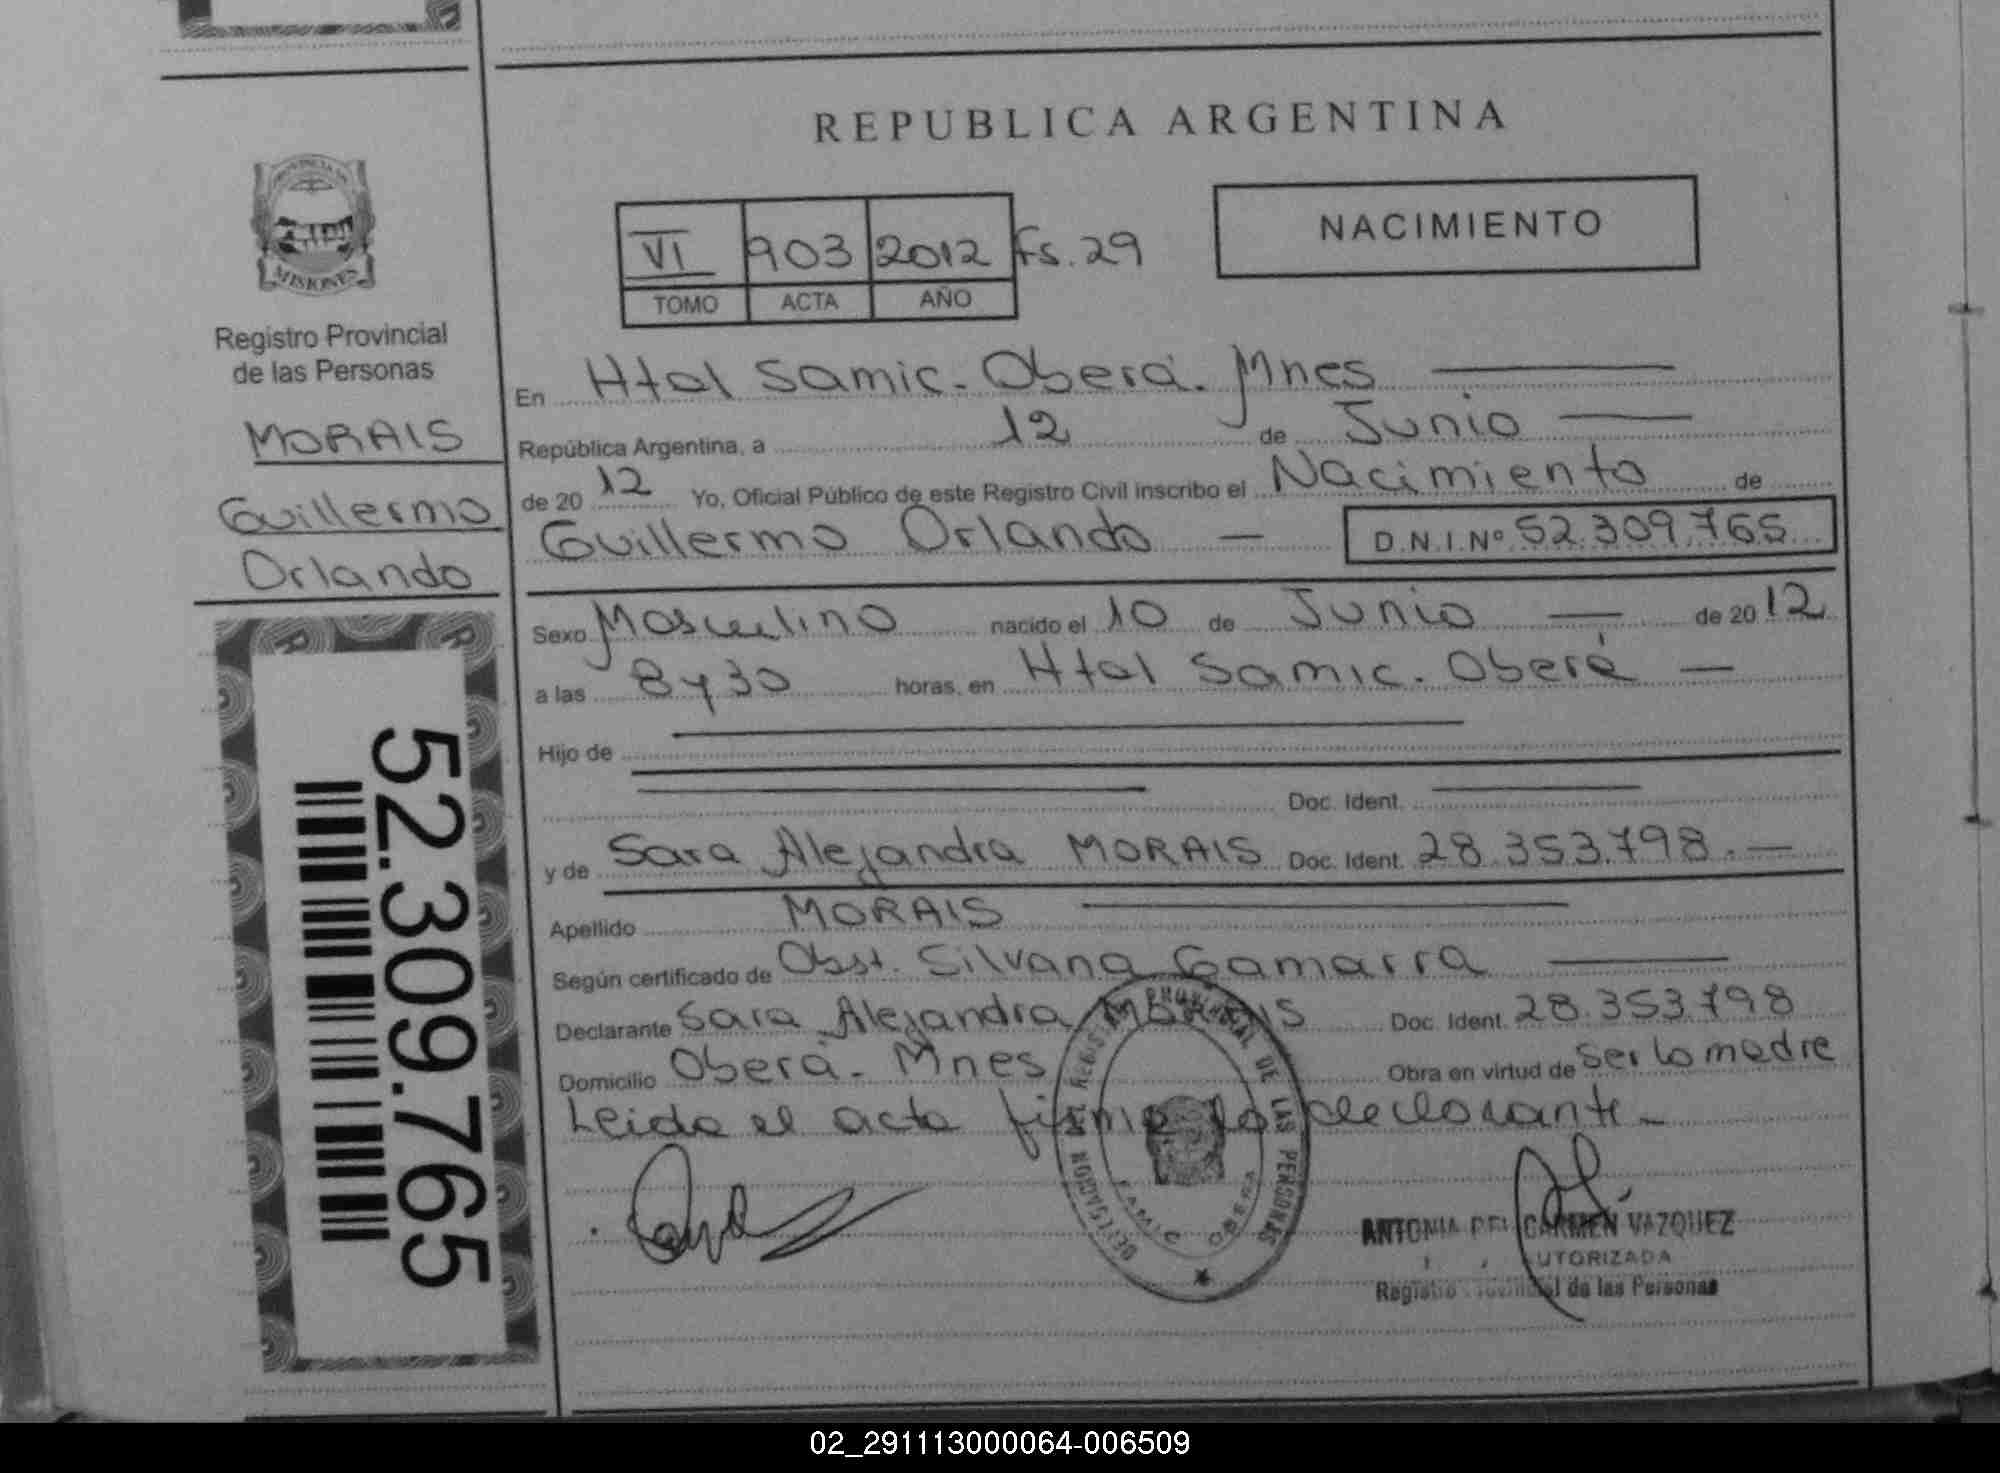 REPUBLICA ARGENTINA
PROVINCIA DE
MISIONES
Registro Provincial
de las Personas
MORAIS
Guillermo
Orlando
52.309.765
VI 903 2012 Fs. 29
TOMO ACTA AÑO
NACIMIENTO
En Htal Samic. Oberá. Mnes
República Argentina, a 12 de Junio
de 20 12 Yo, Oficial Público de este Registro Civil inscribo el Nacimiento de
Guillermo Orlando — D.N.I.Nº 52.309.765
Sexo Masculino nacido el 10 de Junio — de 20 12
a las 8 y 30 horas, en Htal Samic. Oberá —
Hijo de
Doc. Ident.
y de Sara Alejandra MORAIS Doc. Ident. 28.353.798.—
Apellido MORAIS
Según certificado de Obst. Silvana Gamarra
Declarante Sara Alejandra MORAIS Doc. Ident. 28.353.798
Domicilio Oberá. Mnes Obra en virtud de Ser la madre
Leida el acta firma la declarante.-
DELEGACION REGISTRO PROVINCIAL DE LAS PERSONAS
OBERA
ANTONIA DEL CARMEN VAZQUEZ
AUTORIZADA
Registro Provincial de las Personas
02_291113000064-006509